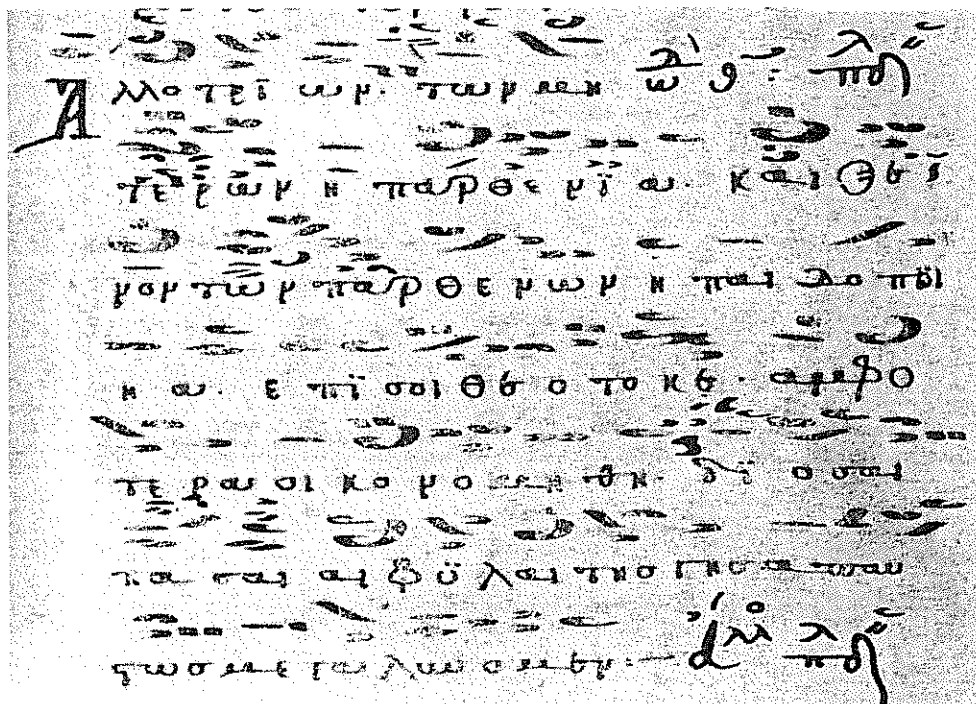 Α λλο τρι ων· των μη
τε ρων η παρ θε νι α· και
νον των παρ θε νων η παι δο ποι
η α· ε πι σοι θε ο το κε· αμφο
τε ρα οι κο νο μη θη· δι ο σαι
πα σαι αι φυ λαι της γης α παυ
στως με γα λυ νο μεν